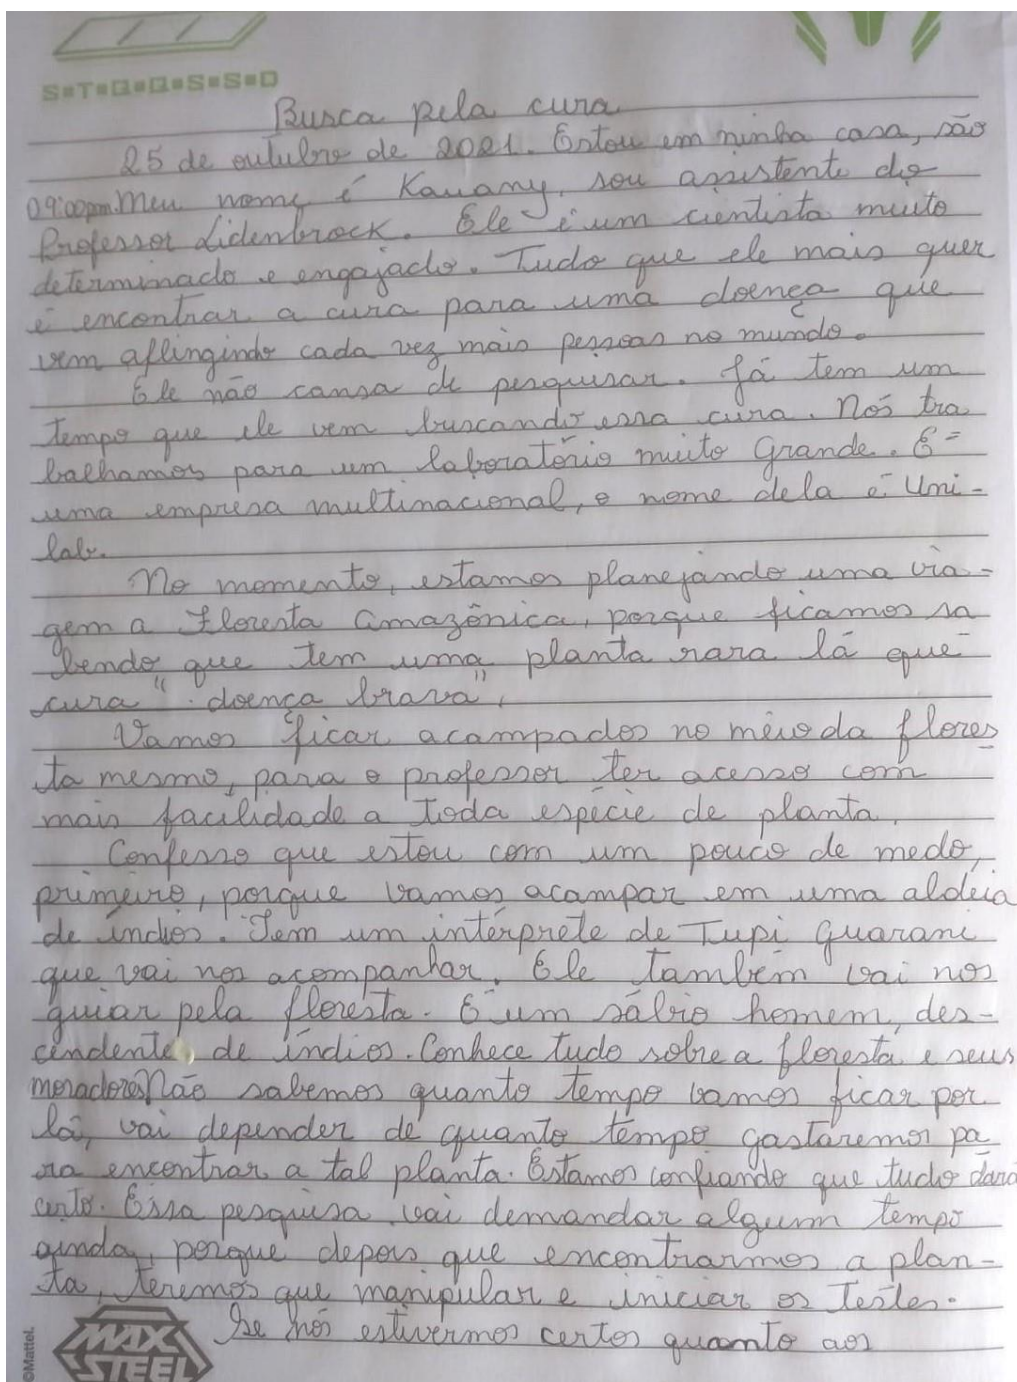 S T Q Q S S D
Busca pela cura
25 de outubro de 2021. Estou em minha casa, são
09:00pm. Meu nome é Kauany, sou assistente do
Professor Lidenbrock. Ele é um cientista muito
determinado e engajado. Tudo que ele mais quer
é encontrar a cura para uma doença que
vem aflingindo cada vez mais pessoas no mundo.
Ele não cansa de pesquisar. Já tem um
tempo que ele vem buscando essa cura. Nós tra
balhamos para um laboratório muito Grande. É
uma empresa multinacional, o nome dela é Uni-
lab.
No momento, estamos planejando uma via-
gem a Floresta Amazônica, porque ficamos sa
bendo que tem uma planta rara lá que
cura "doença brava",
Vamos ficar acampados no meio da flores
ta mesmo, para o professor ter acesso com
mais facilidade a toda espécie de planta.
Confesso que estou com um pouco de medo,
primeiro, porque vamos acampar em uma aldeia
de índios. Tem um intérprete de Tupi Guarani
que vai nos acompanhar. Ele também vai nos
guiar pela floresta. É um sábio homem, des-
cendente de índios. Conhece tudo sobre a floresta e seus
moradores Não sabemos quanto tempo vamos ficar por
lá, vai depender de quanto tempo gastaremos pa
ra encontrar a tal planta. Estamos confiando que tudo dará
certo. Essa pesquisa vai demandar algum tempo
ainda, porque depois que encontrarmos a plan-
ta, teremos que manipular e iniciar os testes.
Se nós estivermos certos quanto aos
MAX
STEEL
©Mattel.